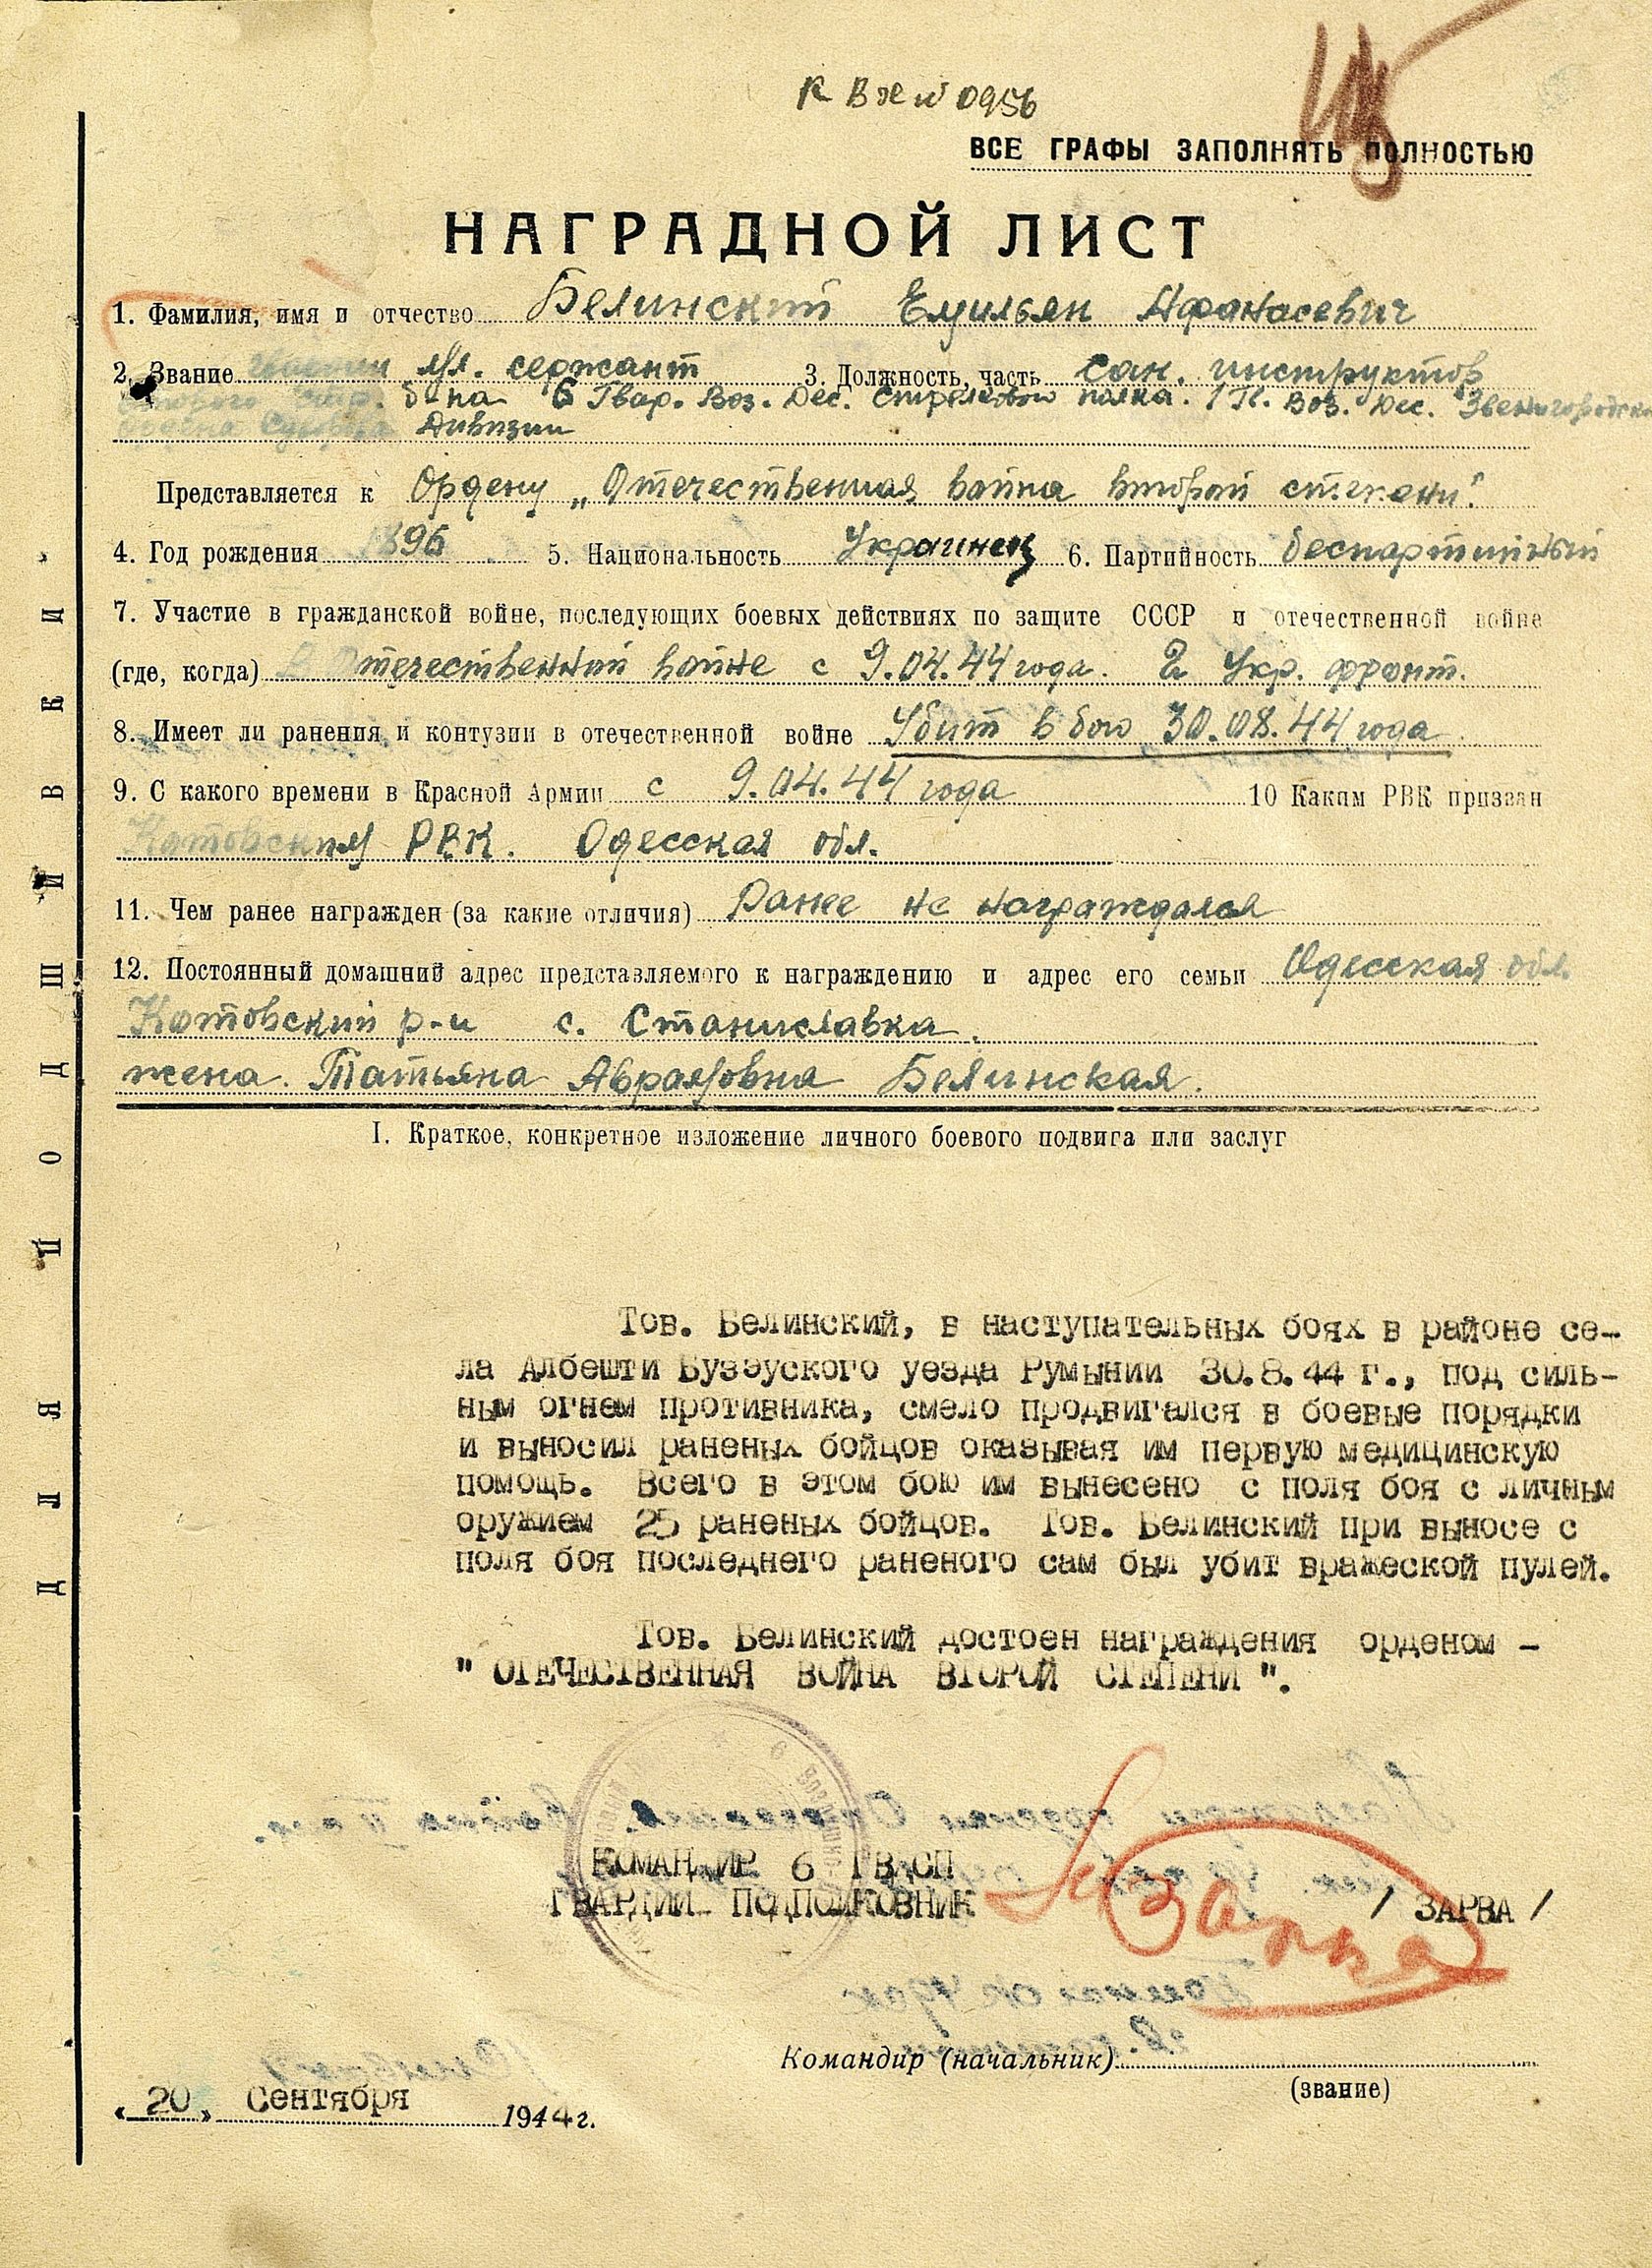 К Вх № 0956
ВСЕ ГРАФЫ ЗАПОЛНЯТЬ ПОЛНОСТЬЮ
НАГРАДНОЙ ЛИСТ
1. Фамилия, имя и отчество Белинский Емильян Афанасевич
2. Звание гвардии мл. сержант 3. Должность, часть Сан. инструктор
б-на 6 Гвар. Воз. Дес. Стрелкового полка. 1 Гв. Воз. Дес. Звенигородской
ордена Суворова Дивизии
Представляется к Ордену „Отечественная война второй степени".
4. Год рождения 1896 5. Национальность Украинец 6. Партийность беспартийный
7. Участие в гражданской войне, последующих боевых действиях по защите СССР и отечественной войне
(где, когда) В Отечественной войне с 9.04.44 года. 2 Укр. фронт.
8. Имеет ли ранения и контузии в отечественной войне Убит в бою 30.08.44 года
9. С какого времени в Красной Армии с 9.04.44 года 10 Каким РВК призван
Котовским РВК. Одесская обл.
11. Чем ранее награжден (за какие отличия) Ранее не награждался
12. Постоянный домашний адрес представляемого к награждению и адрес его семьи Одесская обл.
Котовский р-н с. Станиславка.
жена. Татьяна Аврамовна Белинская.
I. Краткое, конкретное изложение личного боевого подвига или заслуг
Тов. Белинский, в наступательных боях в районе се-
ла Албешти Бузэуского уезда Румынии 30.8.44 г., под силь-
ным огнем противника, смело продвигался в боевые порядки
и выносил раненых бойцов оказывая им первую медицинскую
помощь. Всего в этом бою им вынесено с поля боя с личным
оружием 25 раненых бойцов. Тов. Белинский при выносе с
поля боя последнего раненого сам был убит вражеской пулей.
Тов. Белинский достоен награждения орденом -
" ОТЕЧЕСТВЕННАЯ ВОЙНА ВТОРОЙ СТЕПЕНИ ".
КОМАНДИР 6 ГВ.СП
ГВАРДИИ ПОДПОЛКОВНИК Зарва / ЗАРВА /
Командир (начальник)
(звание)
„ 20 „ Сентября 1944 г.
ДЛЯ ПОДШИВКИ